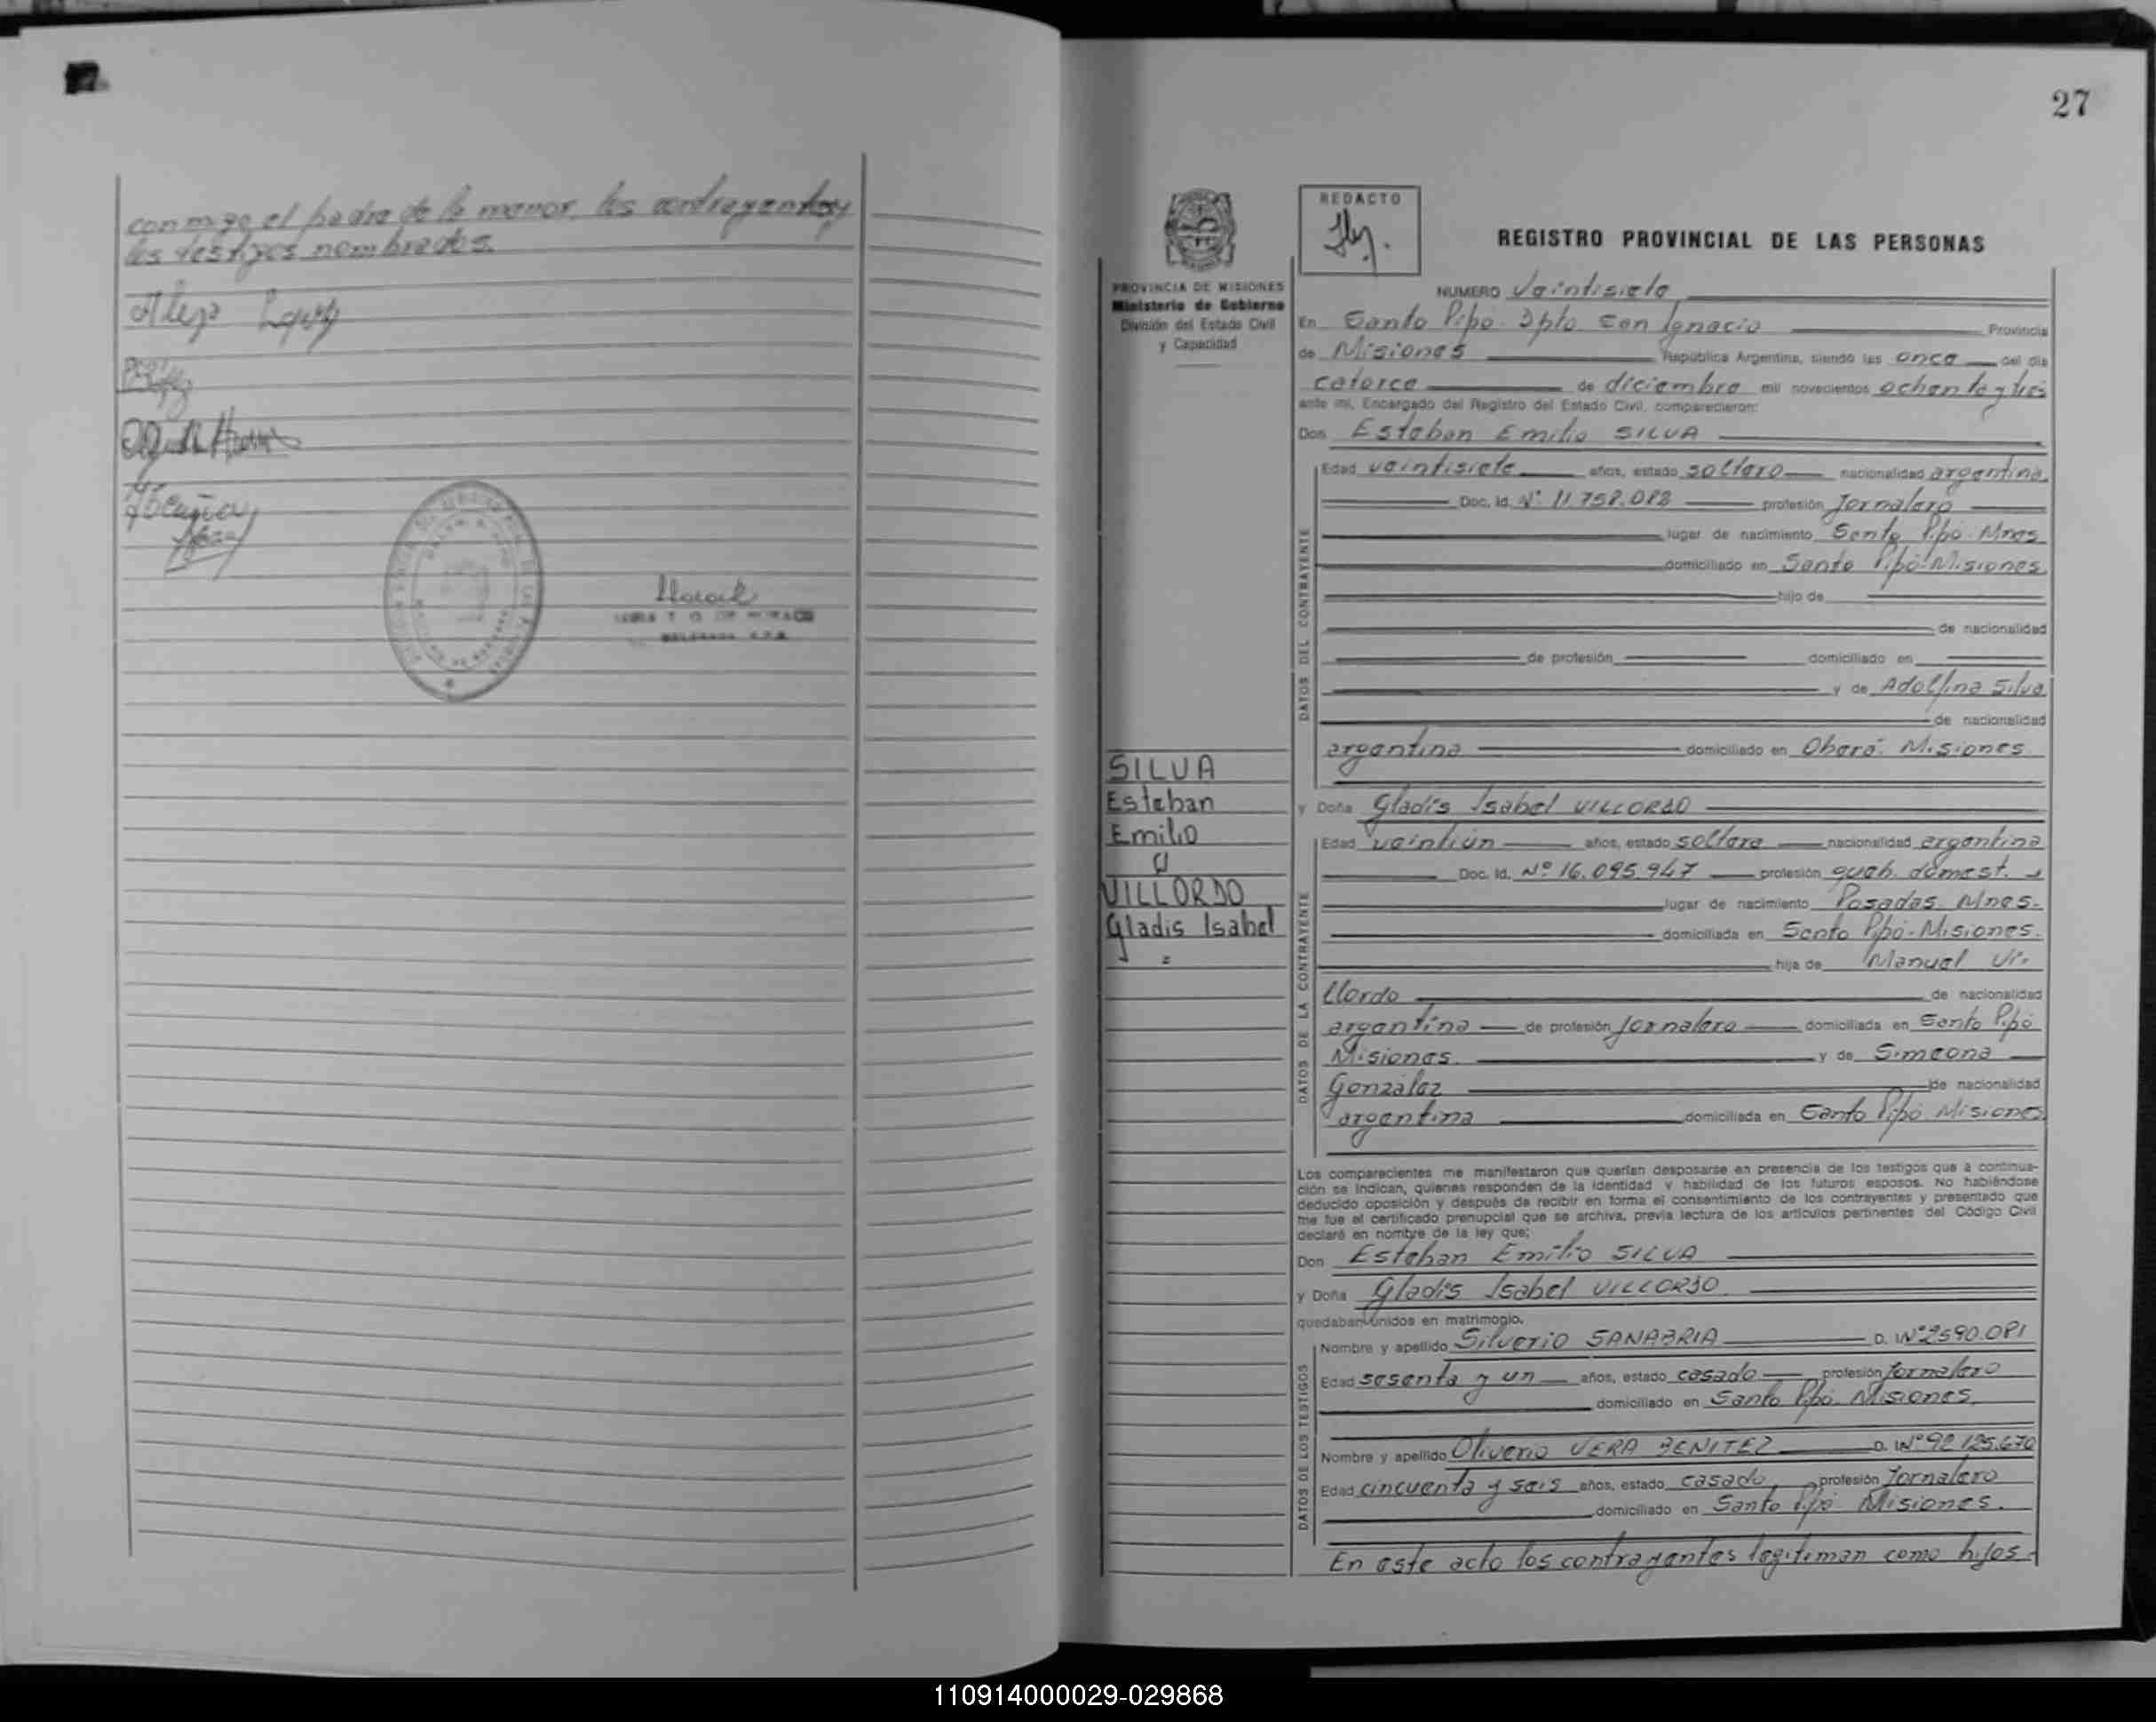 conmigo el padre de la menor, los contrayentes y
los testigos nombrados.
27
REDACTO
REGISTRO PROVINCIAL DE LAS PERSONAS
PROVINCIA DE MISIONES
Ministerio de Gobierno
División del Estado Civil
y Capacidad
SILVA
Esteban
Emilio
y
VILLORDO
Gladis Isabel
=
NUMERO Veintisiete
En Santo Pipo. Dpto San Ignacio Provincia
de Misiones República Argentina, siendo las once del día
catorce de diciembre mil novecientos ochenta y tres
ante mí, Encargado del Registro del Estado Civil, comparecieron:
Don Esteban Emilio SILVA
DATOS DEL CONTRAYENTE
Edad veintisiete años, estado soltero nacionalidad argentina
Doc. Id. Nº 11.758.088 profesión Jornalero
lugar de nacimiento Santo Pipo Mnes
domiciliado en Santo Pipo Misiones
hijo de
de nacionalidad
de profesión domiciliado en
y de Adolfina Silva
de nacionalidad
argentina domiciliado en Oberá. Misiones
y Doña Gladis Isabel VILLORDO
DATOS DE LA CONTRAYENTE
Edad veintiun años, estado soltera nacionalidad argentina
Doc. Id. Nº 16.095.947 profesión queh. domest.
lugar de nacimiento Posadas Mnes.
domiciliada en Santo Pipo - Misiones.
hija de Manuel Vi-
llordo de nacionalidad
argentina de profesión Jornalero domiciliada en Santo Pipo
Misiones y de Simeona
Gonzalez de nacionalidad
argentina domiciliada en Santo Pipo Misiones
Los comparecientes me manifestaron que querían desposarse en presencia de los testigos que a continua-
ción se indican, quienes responden de la identidad y habilidad de los futuros esposos. No habiéndose
deducido oposición y después de recibir en forma el consentimiento de los contrayentes y presentado que
me fue el certificado prenupcial que se archiva, previa lectura de los artículos pertinentes del Código Civil
declaré en nombre de la ley que:
Don Esteban Emilio SILVA
y Doña Gladis Isabel VILLORDO
quedaban unidos en matrimonio.
DATOS DE LOS TESTIGOS
Nombre y apellido Silverio SANABRIA D. I Nº 2590.081
Edad sesenta y un años, estado casado profesión Jornalero
domiciliado en Santo Pipo. Misiones
Nombre y apellido Oliverio VERA BENITEZ D. I Nº 92.125.670
Edad cincuenta y seis años, estado casado profesión Jornalero
domiciliado en Santo Pipo Misiones.
En este acto los contrayentes legitiman como hijos
110914000029-029868